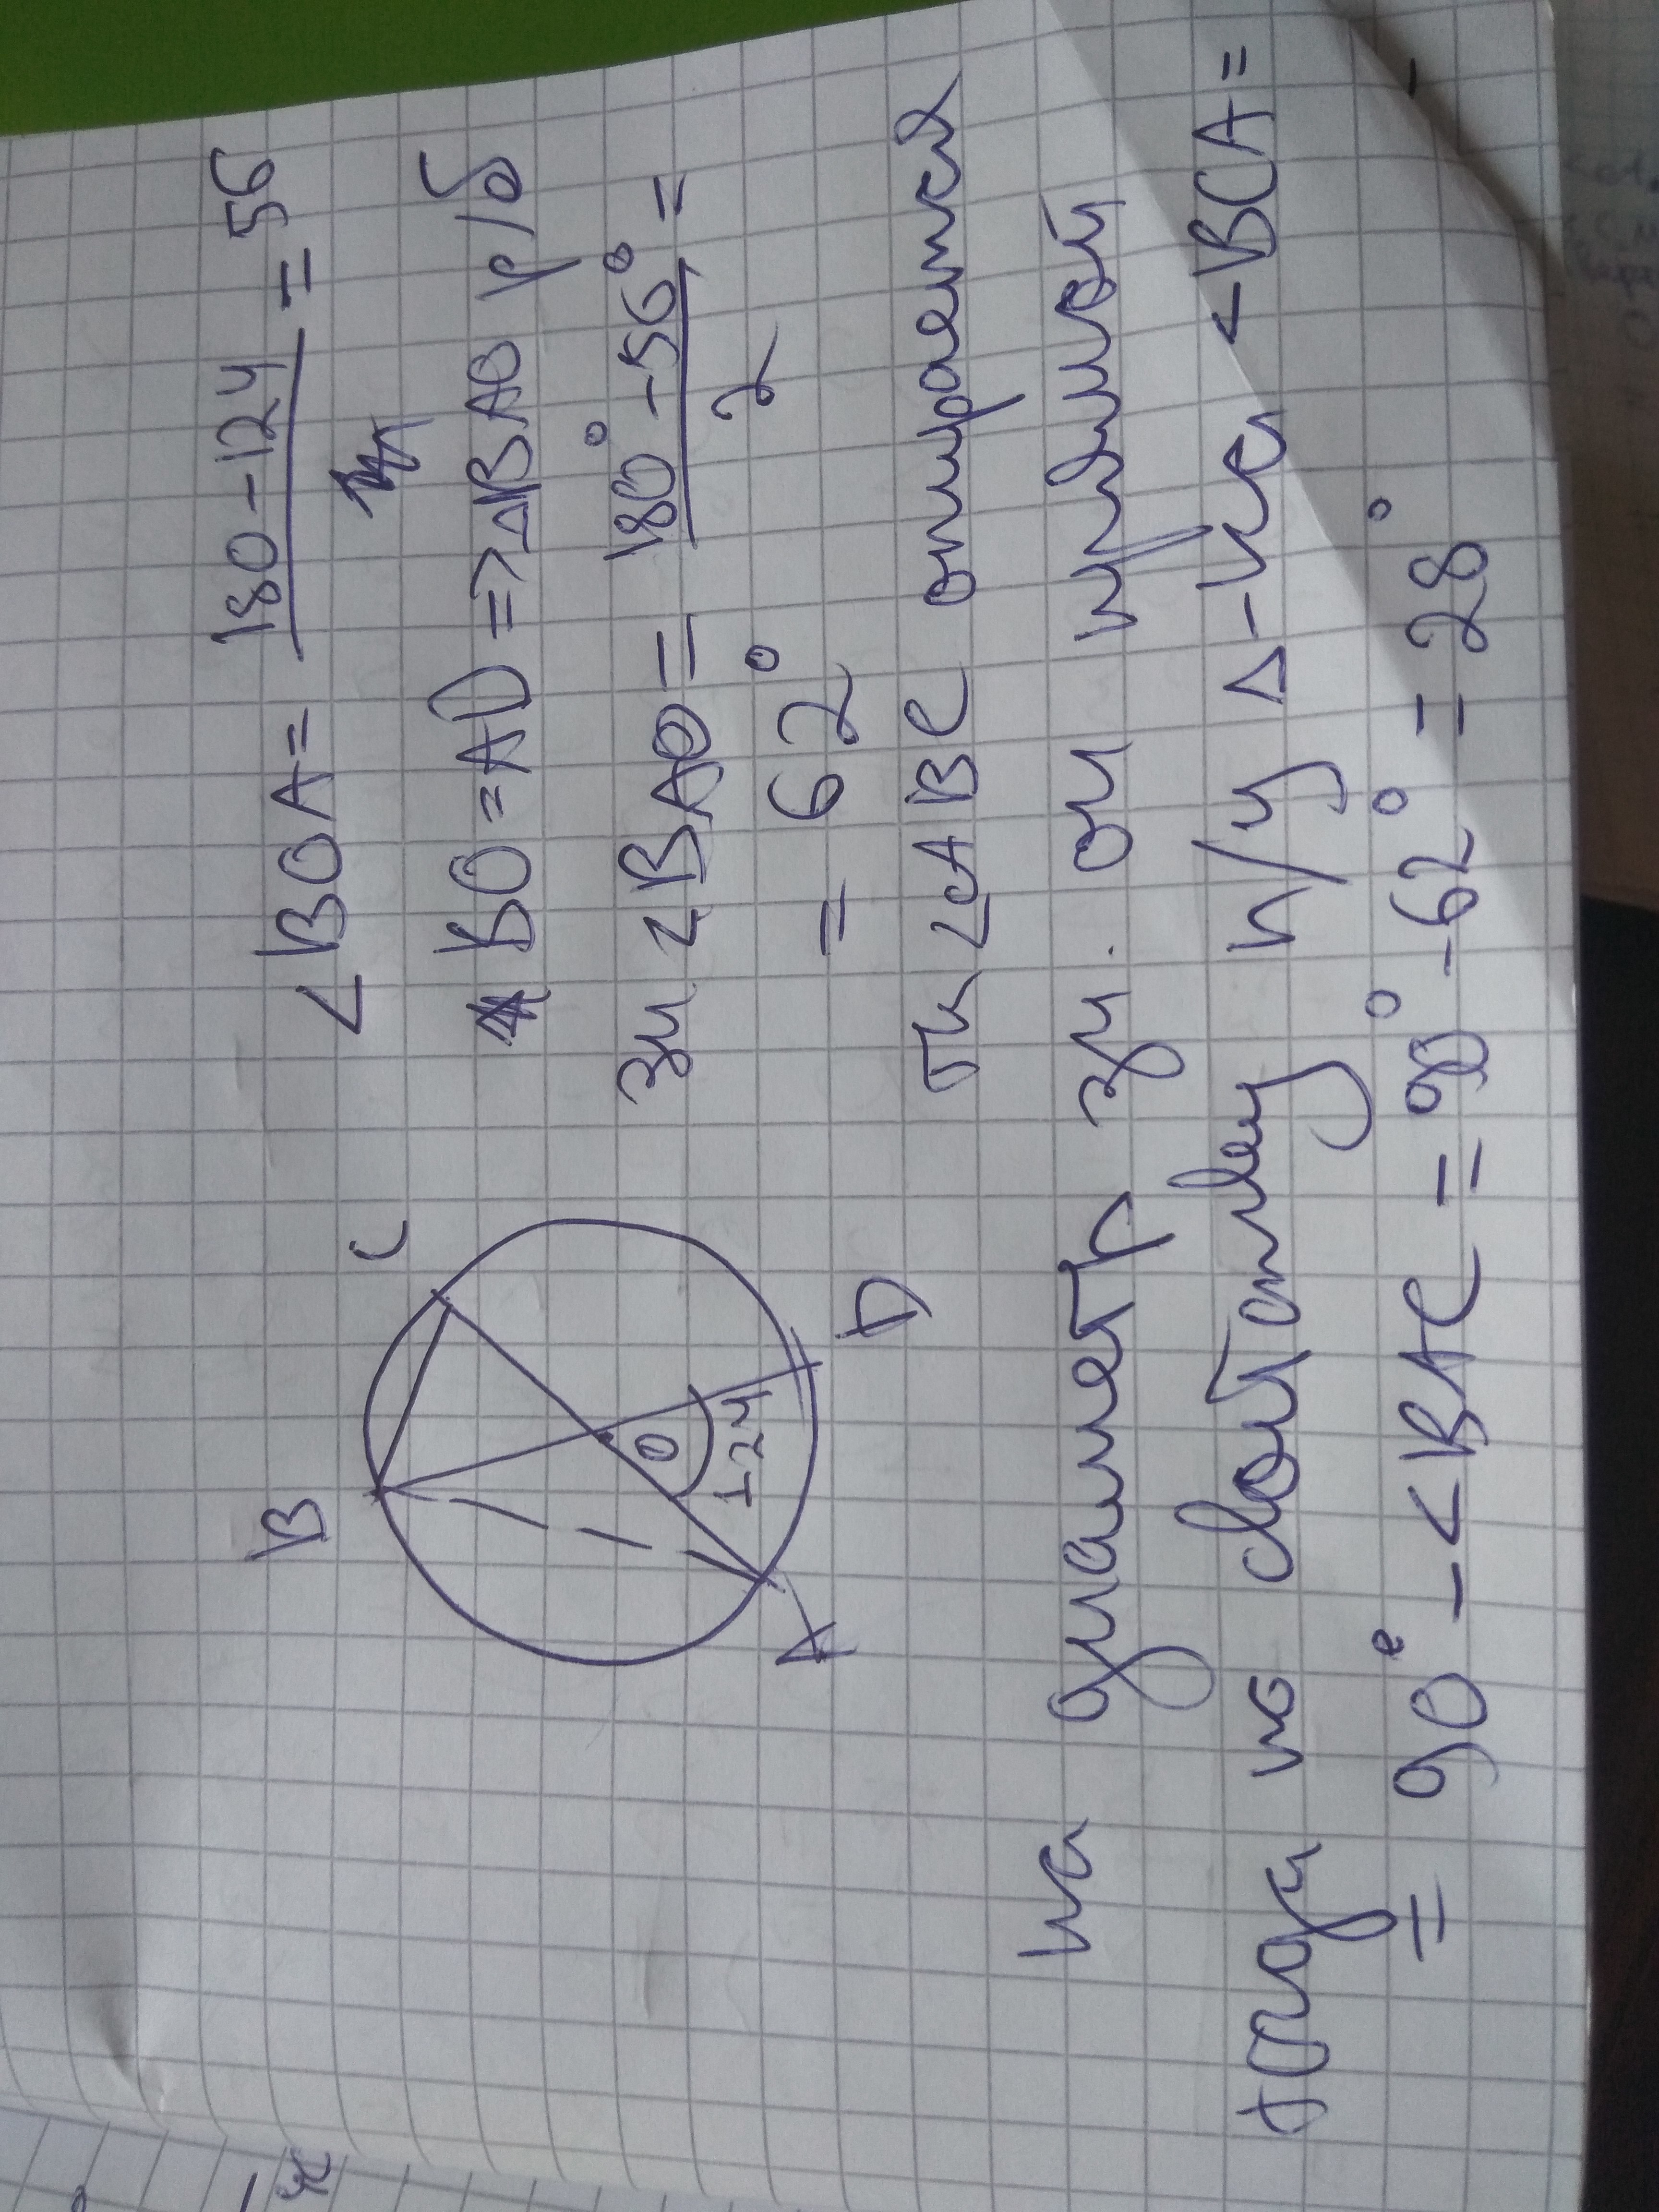 ∠BOA = 180-124 = 56
BO=AO => △BAO р/б
зн ∠BAO = 180°-56° =
2
= 62°
тк ∠ABC опирается
на диаметр зн. он прямой
тогда по свойству п/у △-ка ∠BCA =
= 90° - ∠BAC = 90° - 62° = 28°
B
C
O
124
A
D